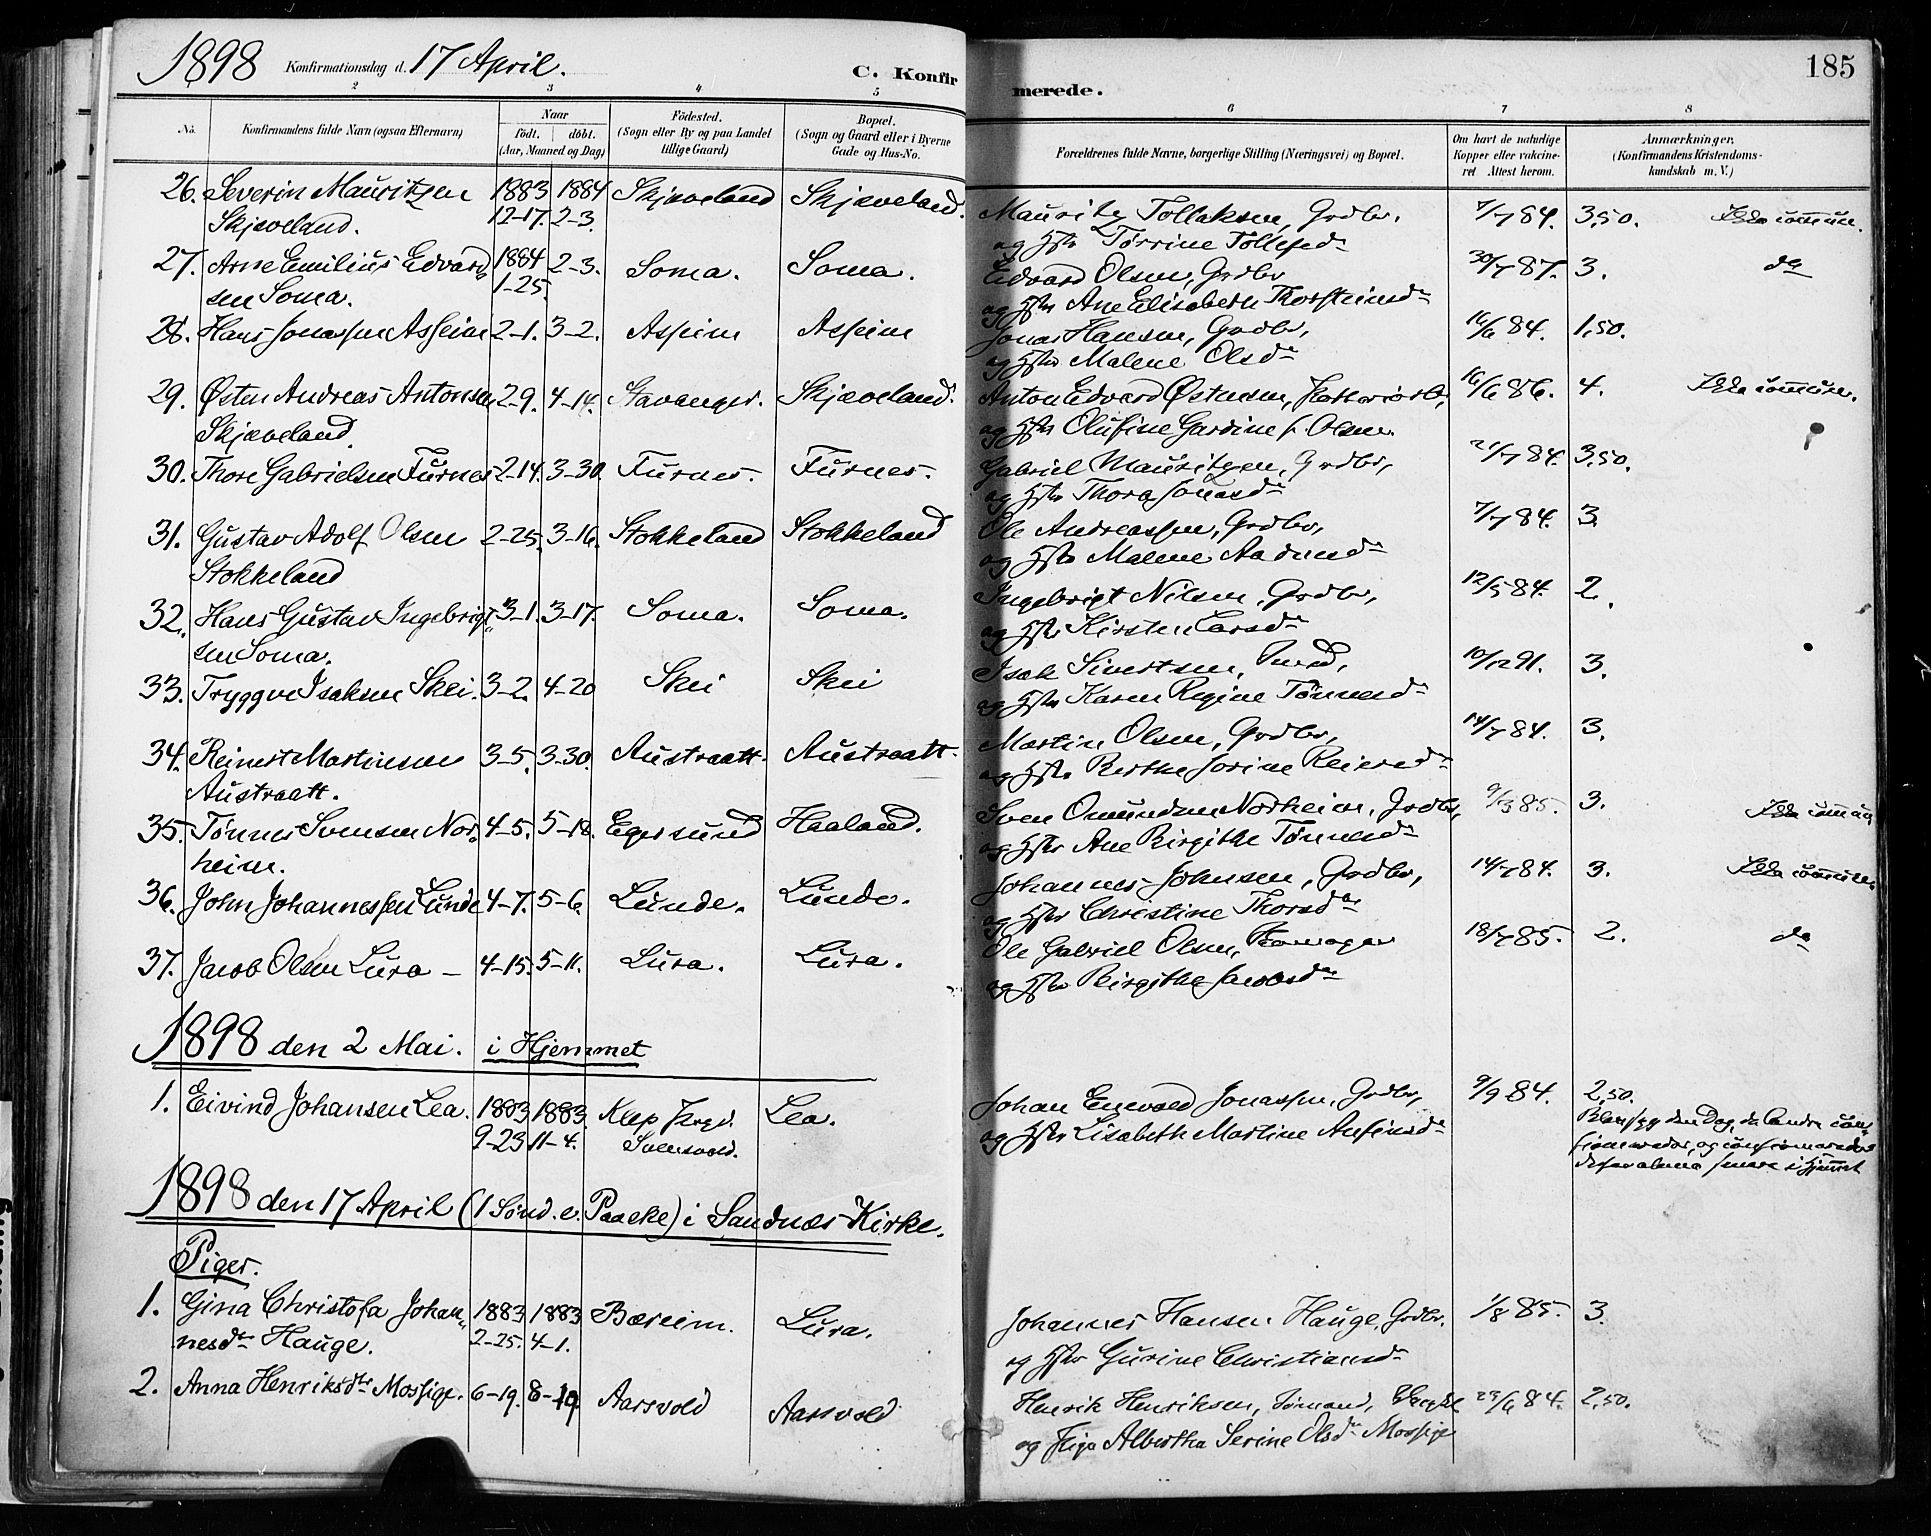 1898 Konfirmationsdag d. 17 April. C. Konfir
merede. 185
2 3 4 5 6 7 8
No. Konfirmandens fulde Navn (ogsaa Efternavn)
Naar
født. døbt.
(Aar, Maaned og Dag)
Fødested.
(Sogn eller By og paa Landet
tillige Gaard)
Bopæl.
(Sogn og Gaard eller i Byerne
Gade og Hus-No.
Forældrenes fulde Navne, borgerlige Stilling (Næringsvei) og Bopæl.
Om havt de naturlige
Kopper eller vakcine-
ret Attest herom.
Anmærkninger.
(Konfirmandens Kristendoms-
kundskab m. V.)
26. Severin Mauritzen 1883 1884 Skjæveland Skjæveland. Mauritz Tollaksen, Grdbr. 7/7 84. 3,50.
Skjæveland. 12-17. 2-3. og Hstr Torrine Tollefsdr
27. Arne Emilius Edvard 1884 2-3. Soma. Soma. Edvard Olsen, Grdbr 30/7 87. 3. do
sen Soma. 1-25. og Hstr Ane Elisabeth Thorsteinsdr
28. Hans Jonassen Asheim 2-1. 3-2. Asheim Asheim Jonas Hansen, Grdbr, 16/6 84. 1,50.
og Hstr Malene Olsdr
29. Østen Andreas Antonsen 2-9. 4-14. Stavanger. Skjæveland. Anton Edvard Østensen, 16/6 86. 4.
Skjæveland. og Hstr Olufine Gardine f. Olsen.
30. Thore Gabrielsen Furnes 2-14. 3-30. Furnes. Furnes. Gabriel Mauritzen, Grdbr, 21/7 84. 3,50.
og Hstr Thora Jonasdr
31. Gustav Adolf Olsen 2-25. 3-16. Stokkeland Stokkeland Ole Andreassen, Grdbr, 7/7 84. 3.
Stokkeland og Hstr Malene Aadnesdr
32. Hans Gustav Ingebrigt 3-1. 3-17. Soma. Soma. Ingebrigt Nilsen, Grdbr, 12/5 84. 2.
sen Soma. og Hstr Kirsten Larsdr
33. Tryggve Isaksen Skei. 3-2. 4-20 Skei Skei Isak Sivertsen, Smed, 10/12 91. 3.
og Hstr Karen Regine Tønnesdr
34. Reinert Martinsen 3-5. 3-30. Austraatt. Austraatt. Martin Olsen, Grdbr, 14/7 84. 3.
Austraatt. og Hstr Berthe Serine Reiersdr
35. Tønnes Svensen Nor 4-5. 5-18. Egersund Haaland. Sven Omundsen Nordheim, Grdbr, 9/3 85. 3.
heim. og Hstr Ane Birgithe Tønnesdr
36. John Johannessen Lunde 4-7. 5-6. Lunde. Lunde. Johannes Johnsen, Grdbr, 14/7 84. 3.
og Hstr Christine Thorsdr
37. Jacob Olsen Lura - 4-15. 5-11. Lura. Lura. Ole Gabriel Olsen, 18/7 85. 2. do
og Hstr Birgithe Jacobsdr
1898 den 2 Mai. i Hjemmet
1. Eivind Johansen Lea. 1883 1883. Klep Lea. Johan Enevald Jonassen, Grdbr, 9/9 84. 2,50.
9-23 11-4. og Hstr Lisabeth Martine Anfinsdr
Blev syg den Dag, de andre con
firmeredes, og confirmeredes
i Hjemmet
1898 den 17 April (1 Sønd. e. Paaske) i Sandnæs Kirke.
Piger.
1. Gina Christofa Johan 1883 1883 Bæreim. Lura. Johannes Hansen Hauge, Grdbr. 1/8 85. 3.
nesdtr Hauge. 2-25. 4-1. og Hstr Gurine Christiansdr
2. Anna Henriksdtr Mossige. 6-19. 8-19. Aarsvold Aarsvold Henrik Henriksen, Sømand, 23/6 84. 2,50.
og Pige Albertha Serine Olsdr Mossige